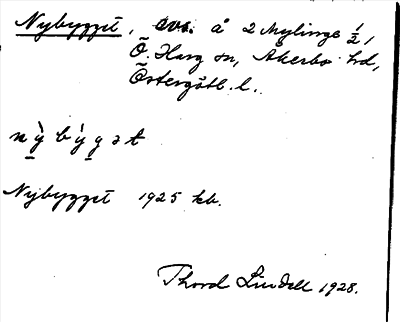 Nybygget, avs. å 2 Mylinge ½,
Ö. Harg sn, Åkerbo hd,
Östergötl. l.
nỳbýgət
Nybygget 1925 kb.
Thord Lindell 1928.